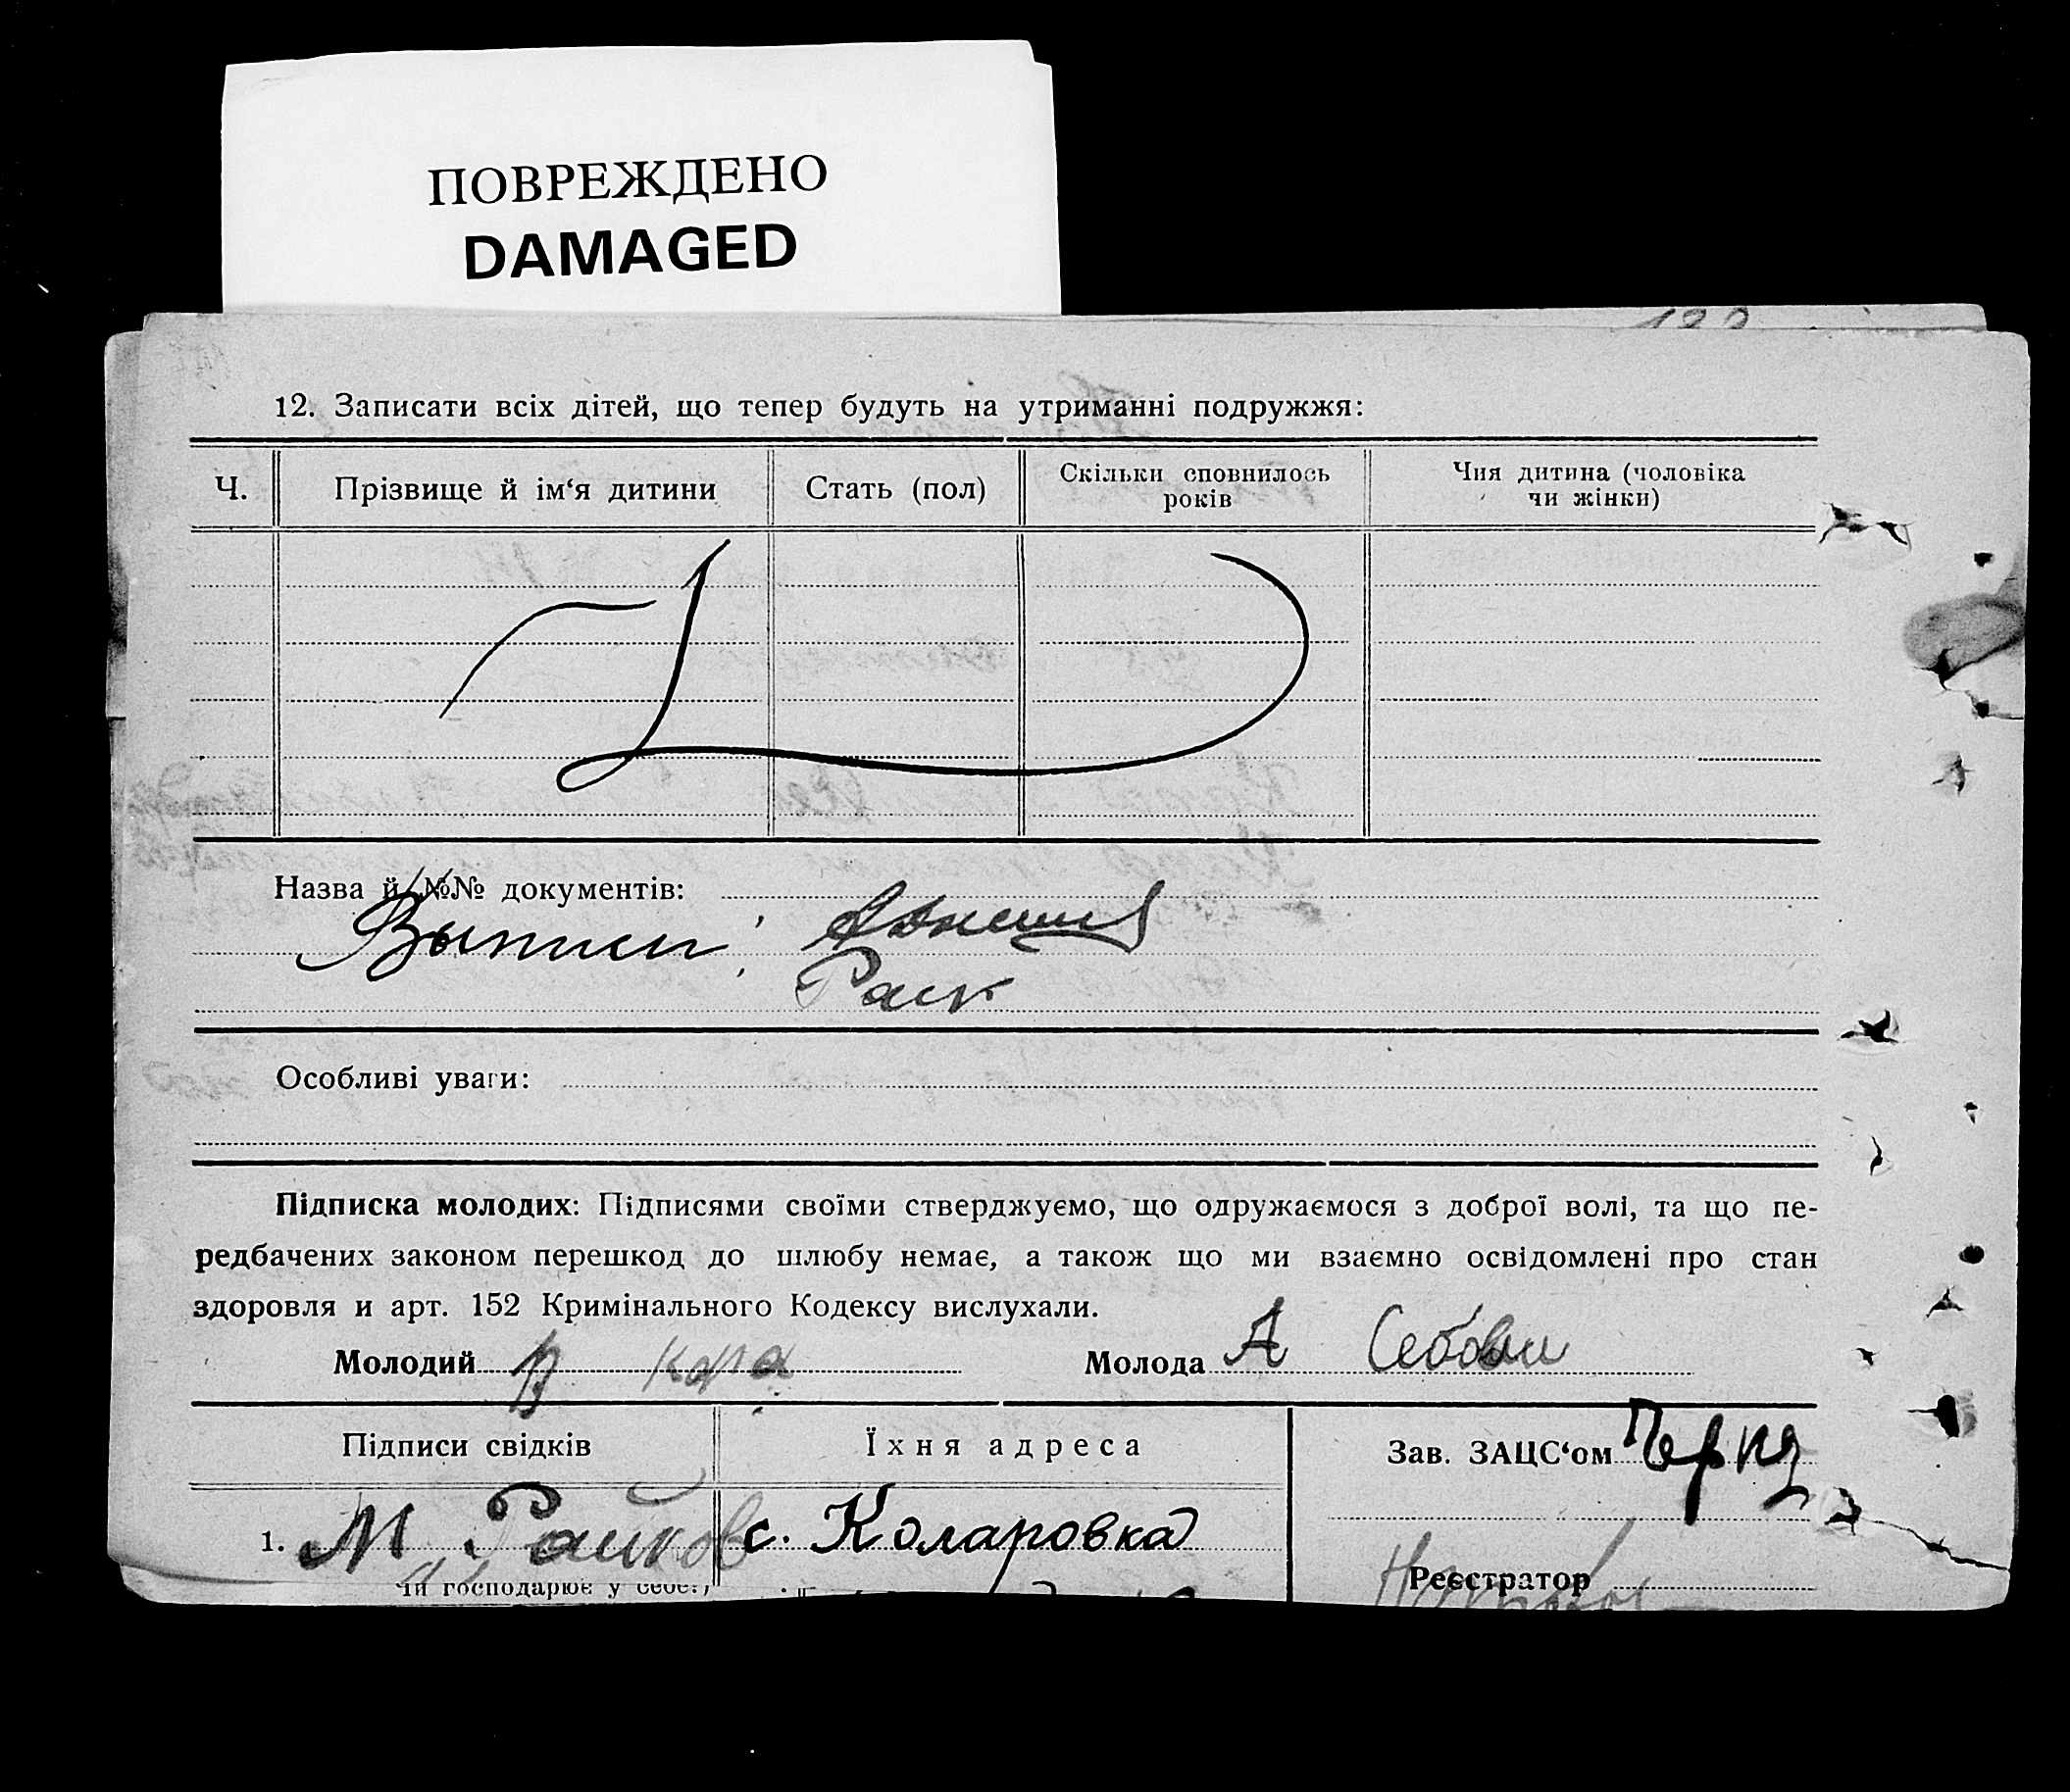 ПОВРЕЖДЕНО
DAMAGED
12. Записати всіх дітей, що тепер будуть на утриманні подружжя:
Ч. Прізвище й ім‘я дитини Стать (пол) Скільки сповнилось років Чия дитина (чоловіка чи жінки)
Назва й №№ документів:
Выписи:
Особливі уваги:
Підписка молодих: Підписями своїми стверджуємо, що одружаємося з доброї волі, та що пе-
редбачених законом перешкод до шлюбу немає, а також що ми взаємно освідомлені про стан
здоровля и арт. 152 Кримінального Кодексу вислухали.
Молодий В кара Молода А
Підписи свідків Їхня адреса Зав. ЗАЦС‘ом
1. М. Райков с. Коларовка
чи господарює у себе:)
Реєстратор